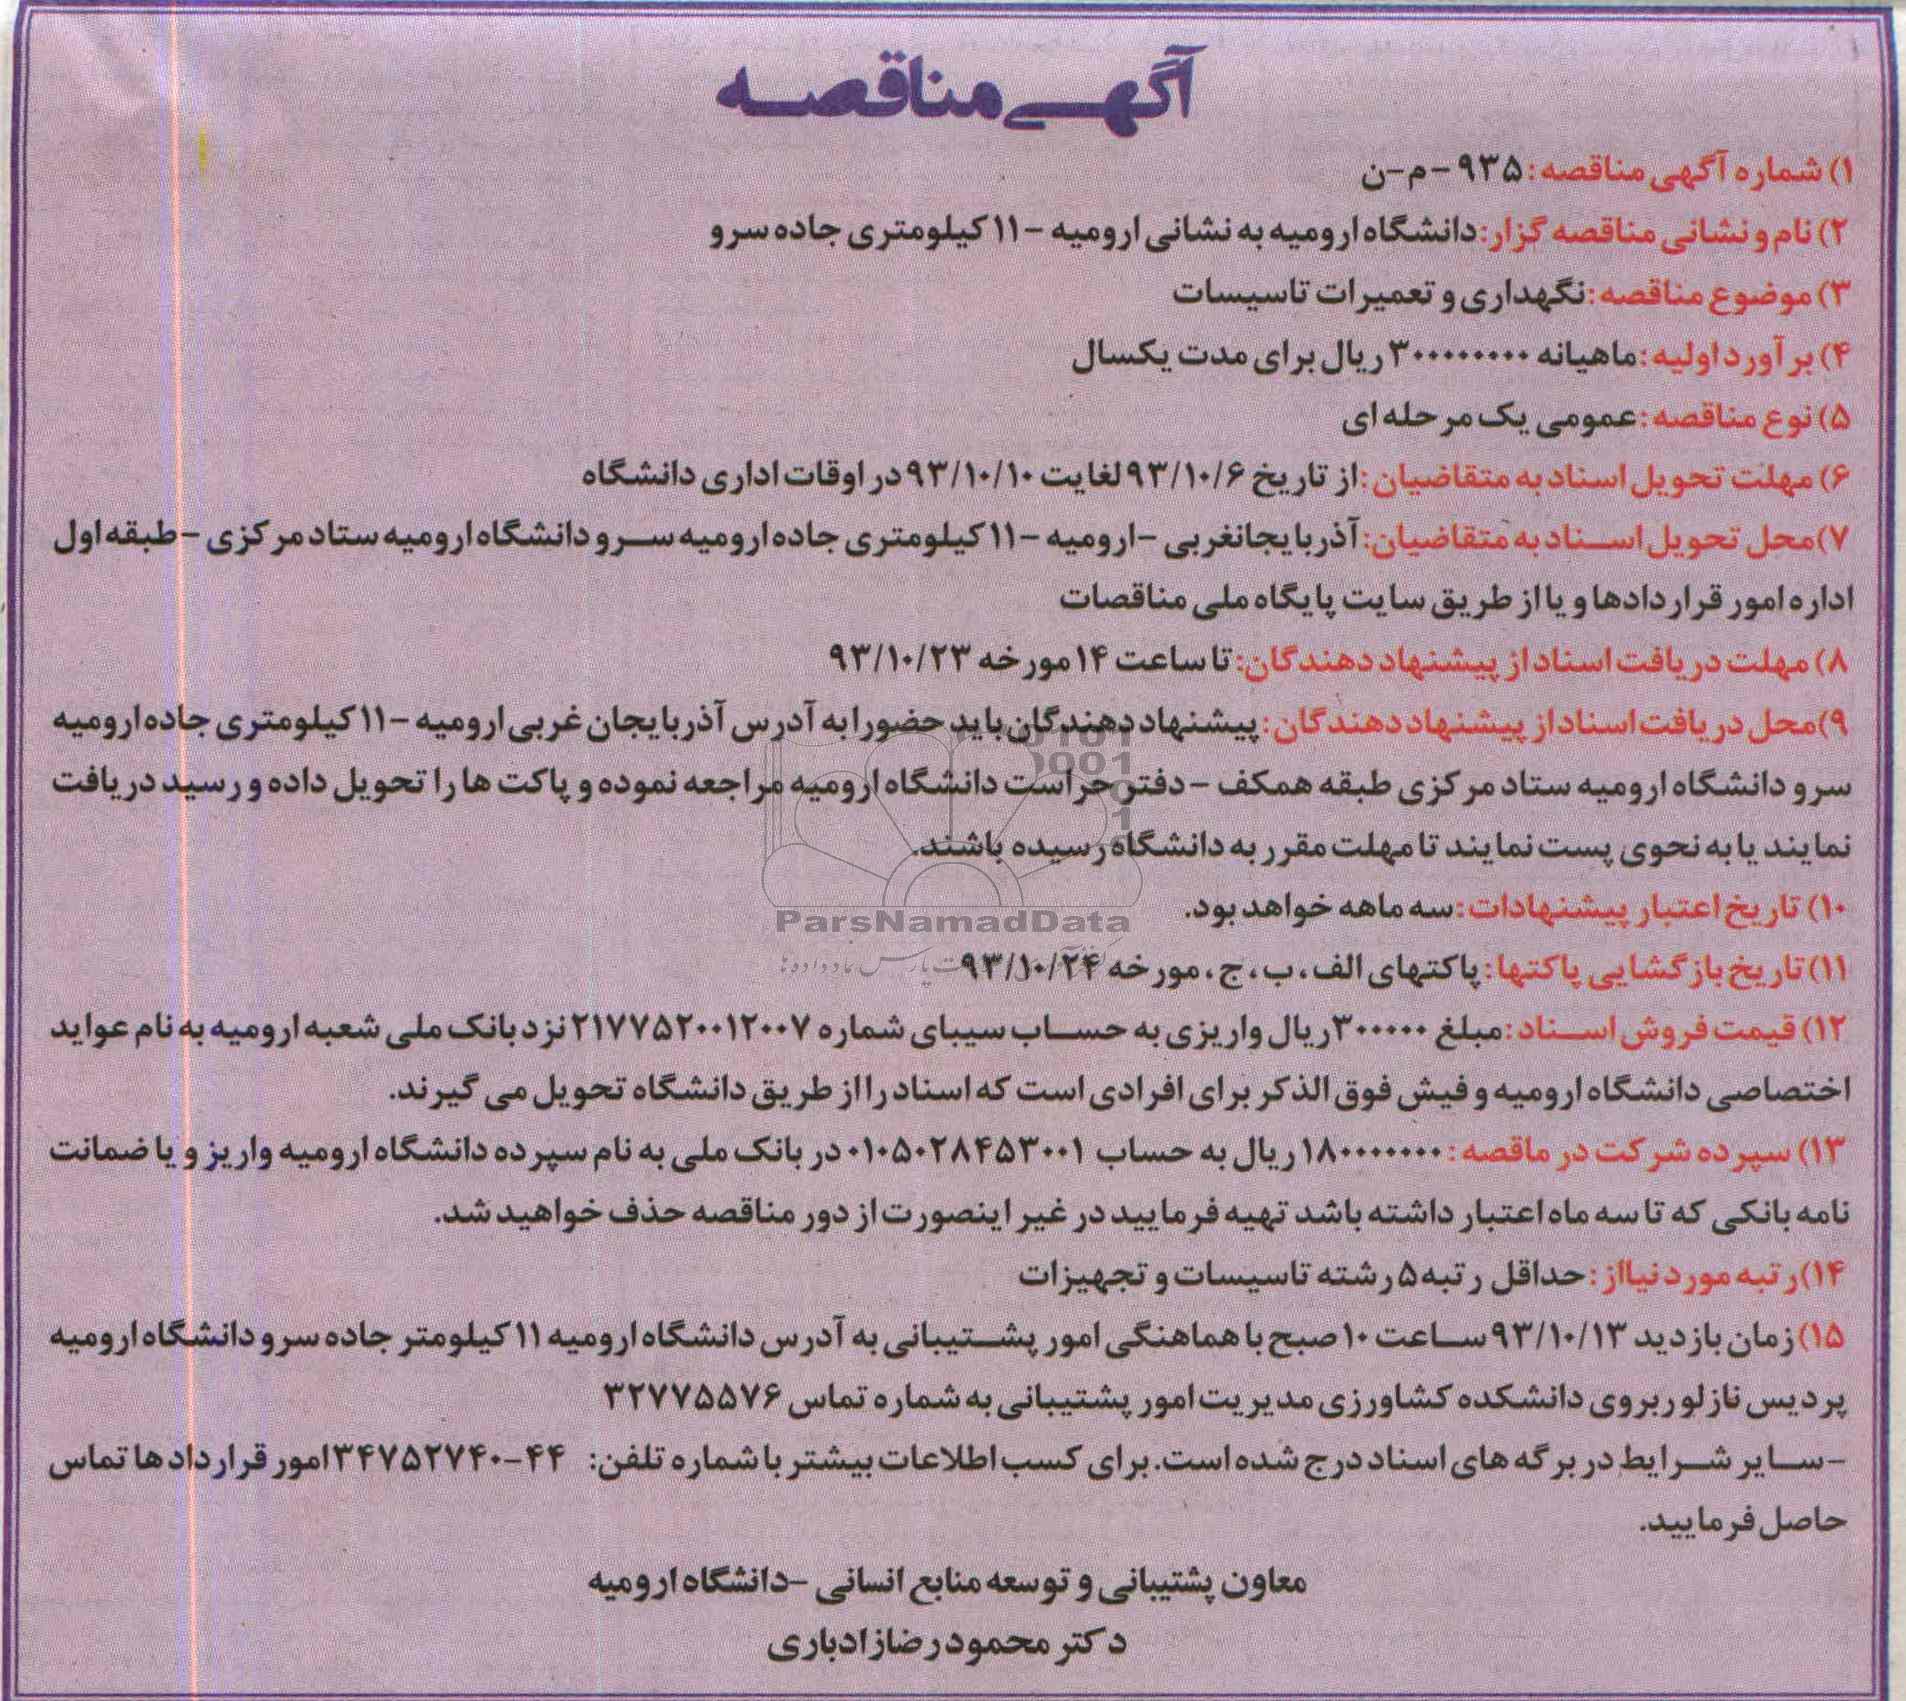 آگهی مناقصه
۱) شماره آگهی مناقصه: ۹۳۵ -م-ن
۲) نام و نشانی مناقصه گزار: دانشگاه ارومیه به نشانی ارومیه -۱۱ کیلومتری جاده سرو
۳) موضوع مناقصه: نگهداری و تعمیرات تاسیسات
۴) برآورد اولیه: ماهیانه ۳۰۰۰۰۰۰۰۰ ریال برای مدت یکسال
۵) نوع مناقصه: عمومی یک مرحله ای
۶) مهلت تحویل اسناد به متقاضیان: از تاریخ ۹۳/۱۰/۶ لغایت ۹۳/۱۰/۱۰ در اوقات اداری دانشگاه
۷) محل تحویل اسناد به متقاضیان: آذربایجانغربی -ارومیه -۱۱ کیلومتری جاده ارومیه سرو دانشگاه ارومیه ستاد مرکزی - طبقه اول
اداره امور قراردادها و یا از طریق سایت پایگاه ملی مناقصات
۸) مهلت دریافت اسناد از پیشنهاد دهندگان: تا ساعت ۱۴ مورخه ۹۳/۱۰/۲۳
۹) محل دریافت اسناد از پیشنهاد دهندگان: پیشنهاد دهندگان باید حضورا به آدرس آذربایجان غربی ارومیه -۱۱ کیلومتری جاده ارومیه
سرو دانشگاه ارومیه ستاد مرکزی طبقه همکف - دفتر حراست دانشگاه ارومیه مراجعه نموده و پاکت ها را تحویل داده و رسید دریافت
نمایند یا به نحوی پست نمایند تا مهلت مقرر به دانشگاه رسیده باشند.
۱۰) تاریخ اعتبار پیشنهادات: سه ماهه خواهد بود.
ParsNamadData
۱۱) تاریخ بازگشایی پاکتها: پاکتهای الف، ب، ج، مورخه ۹۳/۱۰/۲۴
۱۲) قیمت فروش اسناد: مبلغ ۳۰۰۰۰۰ ریال واریزی به حساب سیبای شماره ۲۱۷۷۵۲۰۰۱۲۰۰۷ نزد بانک ملی شعبه ارومیه به نام عواید
اختصاصی دانشگاه ارومیه و فیش فوق الذکر برای افرادی است که اسناد را از طریق دانشگاه تحویل می گیرند.
۱۳) سپرده شرکت در ماقصه: ۱۸۰۰۰۰۰۰۰ ریال به حساب ۰۱۰۵۰۲۸۴۵۳۰۰۱ در بانک ملی به نام سپرده دانشگاه ارومیه واریز و یا ضمانت
نامه بانکی که تا سه ماه اعتبار داشته باشد تهیه فرمایید در غیر اینصورت از دور مناقصه حذف خواهید شد.
۱۴) رتبه مورد نیااز: حداقل رتبه ۵ رشته تاسیسات و تجهیزات
۱۵) زمان بازدید ۹۳/۱۰/۱۳ ساعت ۱۰ صبح با هماهنگی امور پشتیبانی به آدرس دانشگاه ارومیه ۱۱ کیلومتر جاده سرو دانشگاه ارومیه
پردیس نازلو ربروی دانشکده کشاورزی مدیریت امور پشتیبانی به شماره تماس ۳۲۷۷۵۵۷۶
-سایر شرایط در برگه های اسناد درج شده است. برای کسب اطلاعات بیشتر با شماره تلفن: ۴۴-۳۴۷۵۲۷۴۰ امور قرارداد ها تماس
حاصل فرمایید.
معاون پشتیبانی و توسعه منابع انسانی -دانشگاه ارومیه
دکتر محمودرضازادباری